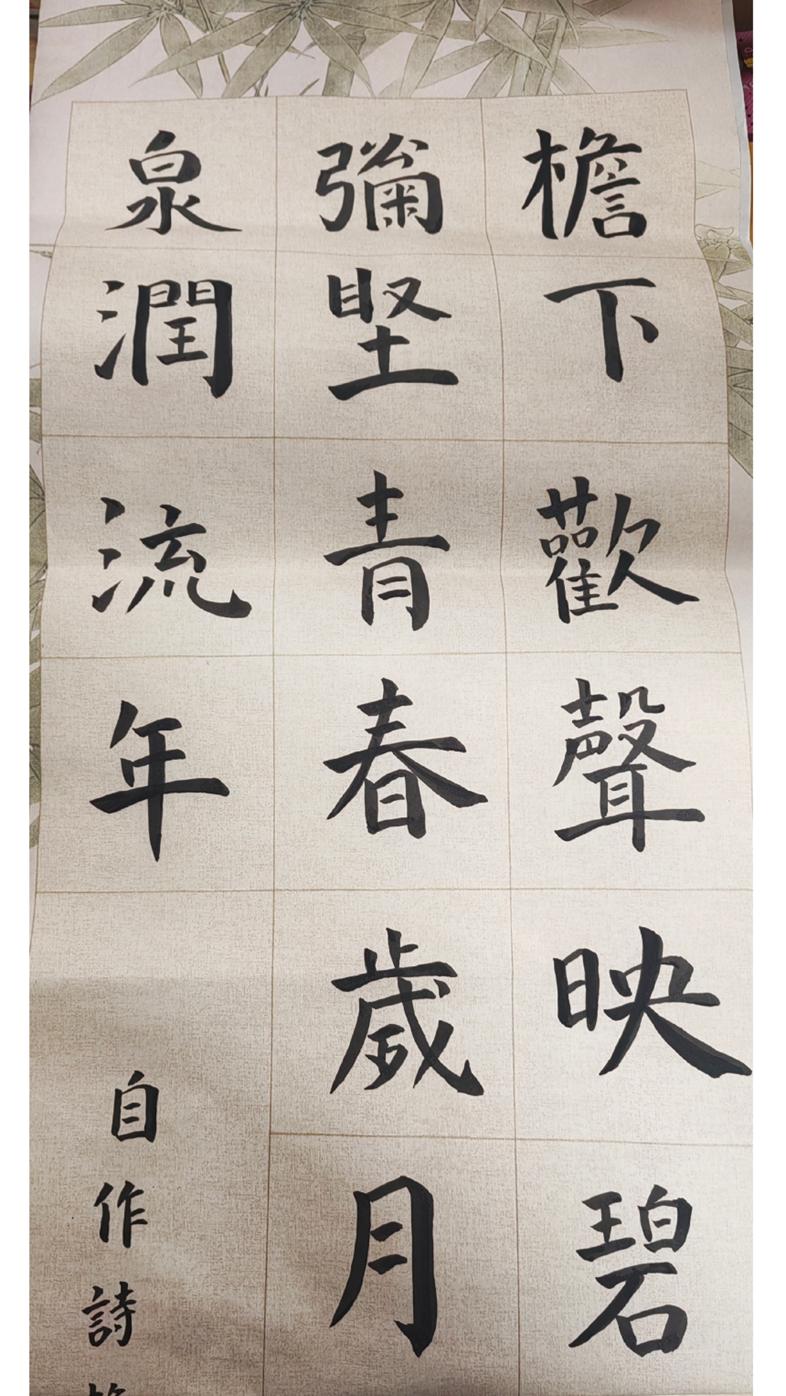 檐下歡聲映碧
彌堅青春歲月
泉潤流年
自作詩